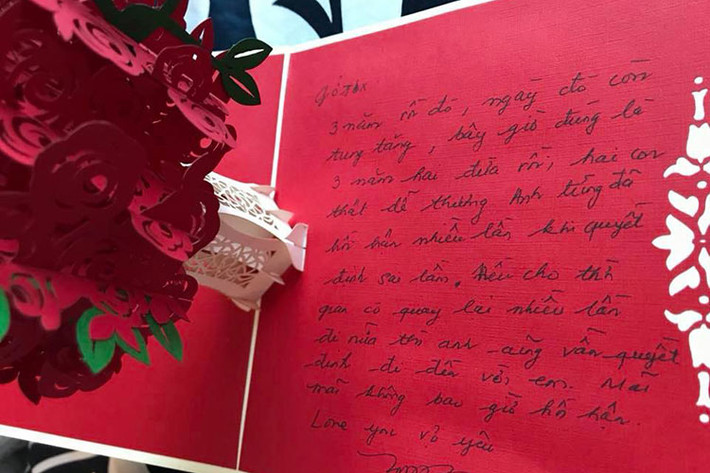 Gửi Thx
3 năm rồi đó, ngày đó còn
tung tăng, bây giờ đúng là
3 năm hai đứa rồi, hai con
thật dễ thương Anh từng đã
hối hận nhiều lần khi quyết
định sai lầm. Nếu cho thời
gian có quay lại nhiều lần
đi nữa thì anh cũng vẫn quyết
định đi đến với em. Mãi
mãi không bao giờ hối hận.
Love you vợ yêu